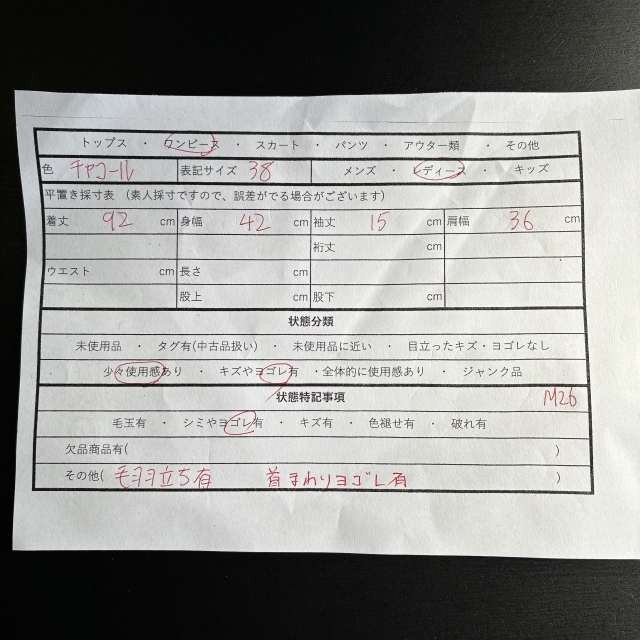 トップス ・ ワンピース ・ スカート ・ パンツ ・ アウター類 ・ その他
色 チャコール 表記サイズ 38 メンズ ・ レディース ・ キッズ
平置き採寸表 (素人採寸ですので、誤差がでる場合がございます)
着丈 92 cm 身幅 42 cm 袖丈 15 cm 肩幅 36 cm
裄丈 cm
ウエスト cm 長さ cm
股上 cm 股下 cm
状態分類
未使用品 ・ タグ有(中古品扱い) ・ 未使用品に近い ・ 目立ったキズ・ヨゴレなし
少々使用感あり ・ キズやヨゴレ有 ・全体的に使用感あり ・ ジャンク品
状態特記事項 M26
毛玉有 ・ シミやヨゴレ有 ・ キズ有 ・ 色褪せ有 ・ 破れ有
欠品商品有( )
その他( 毛羽立ち有 首まわりヨゴレ有 )